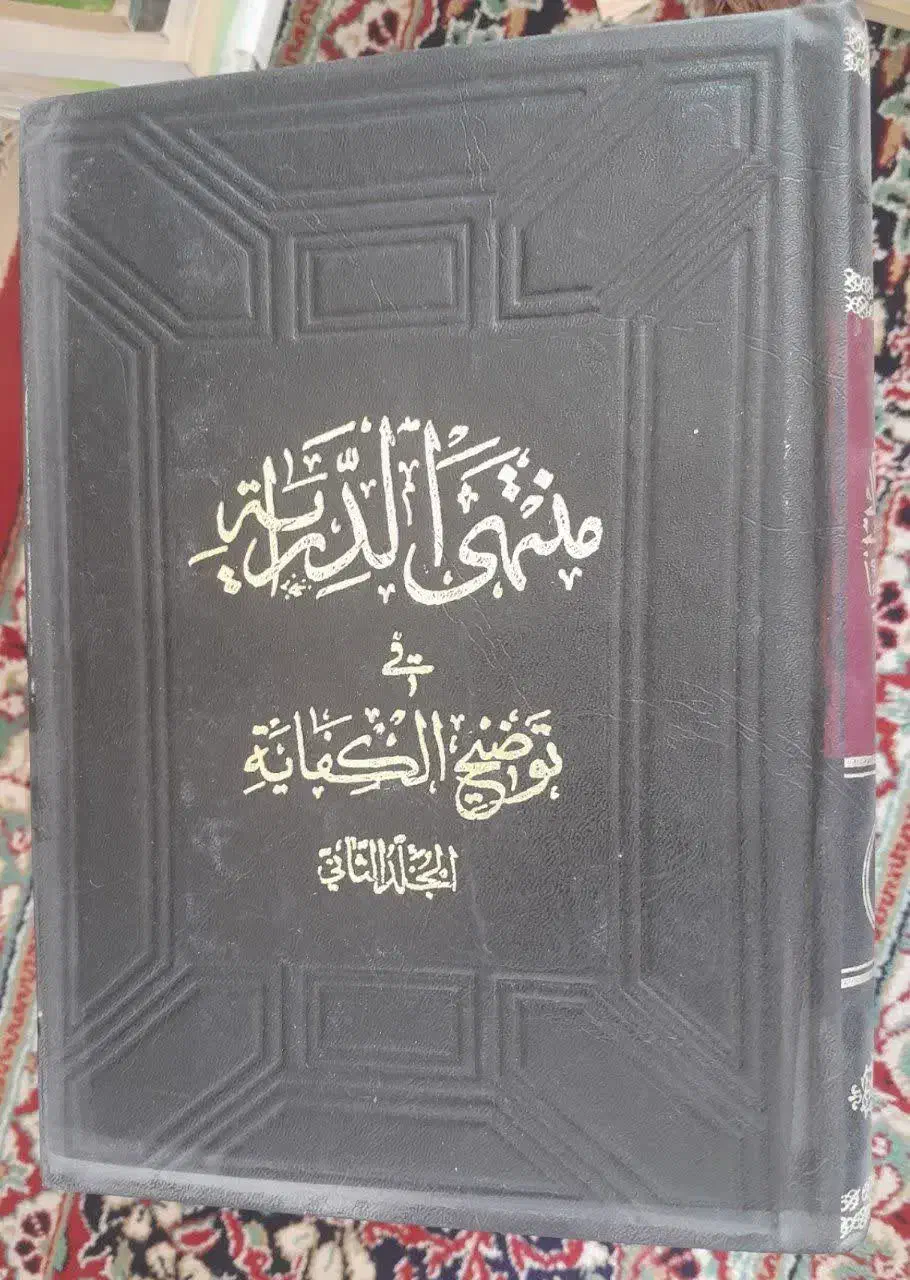 منتهى الدِّرَايَةِ
في
تَوضيح الكِفَايَةِ
المجَلّدُ الثّاني